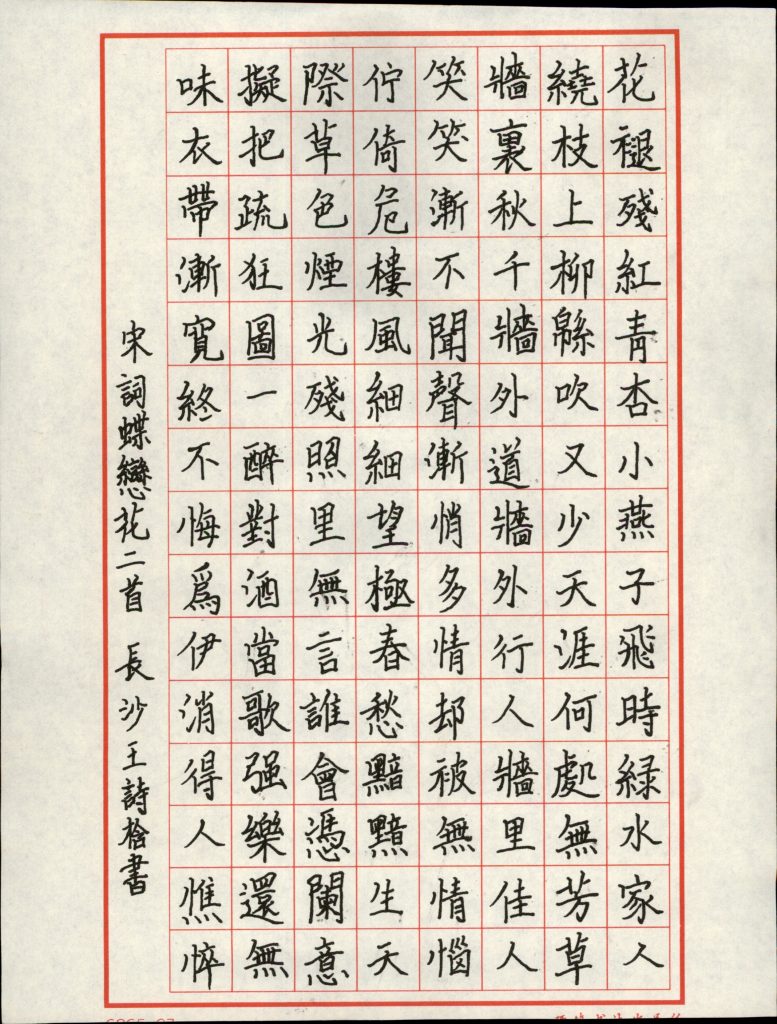 花褪殘紅青杏小燕子飛時緑水家人
繞枝上柳緜吹又少天涯何處無芳草
牆裏秋千牆外道牆外行人牆里佳人
笑笑漸不聞聲漸悄多情却被無情惱
佇倚危樓風細細望極春愁黯黯生天
際草色煙光殘照里無言誰會憑闌意
擬把疏狂圖一醉對酒當歌强樂還無
味衣帶漸寬終不悔爲伊消得人憔悴
宋詞蝶戀花二首 長沙王詩桧書